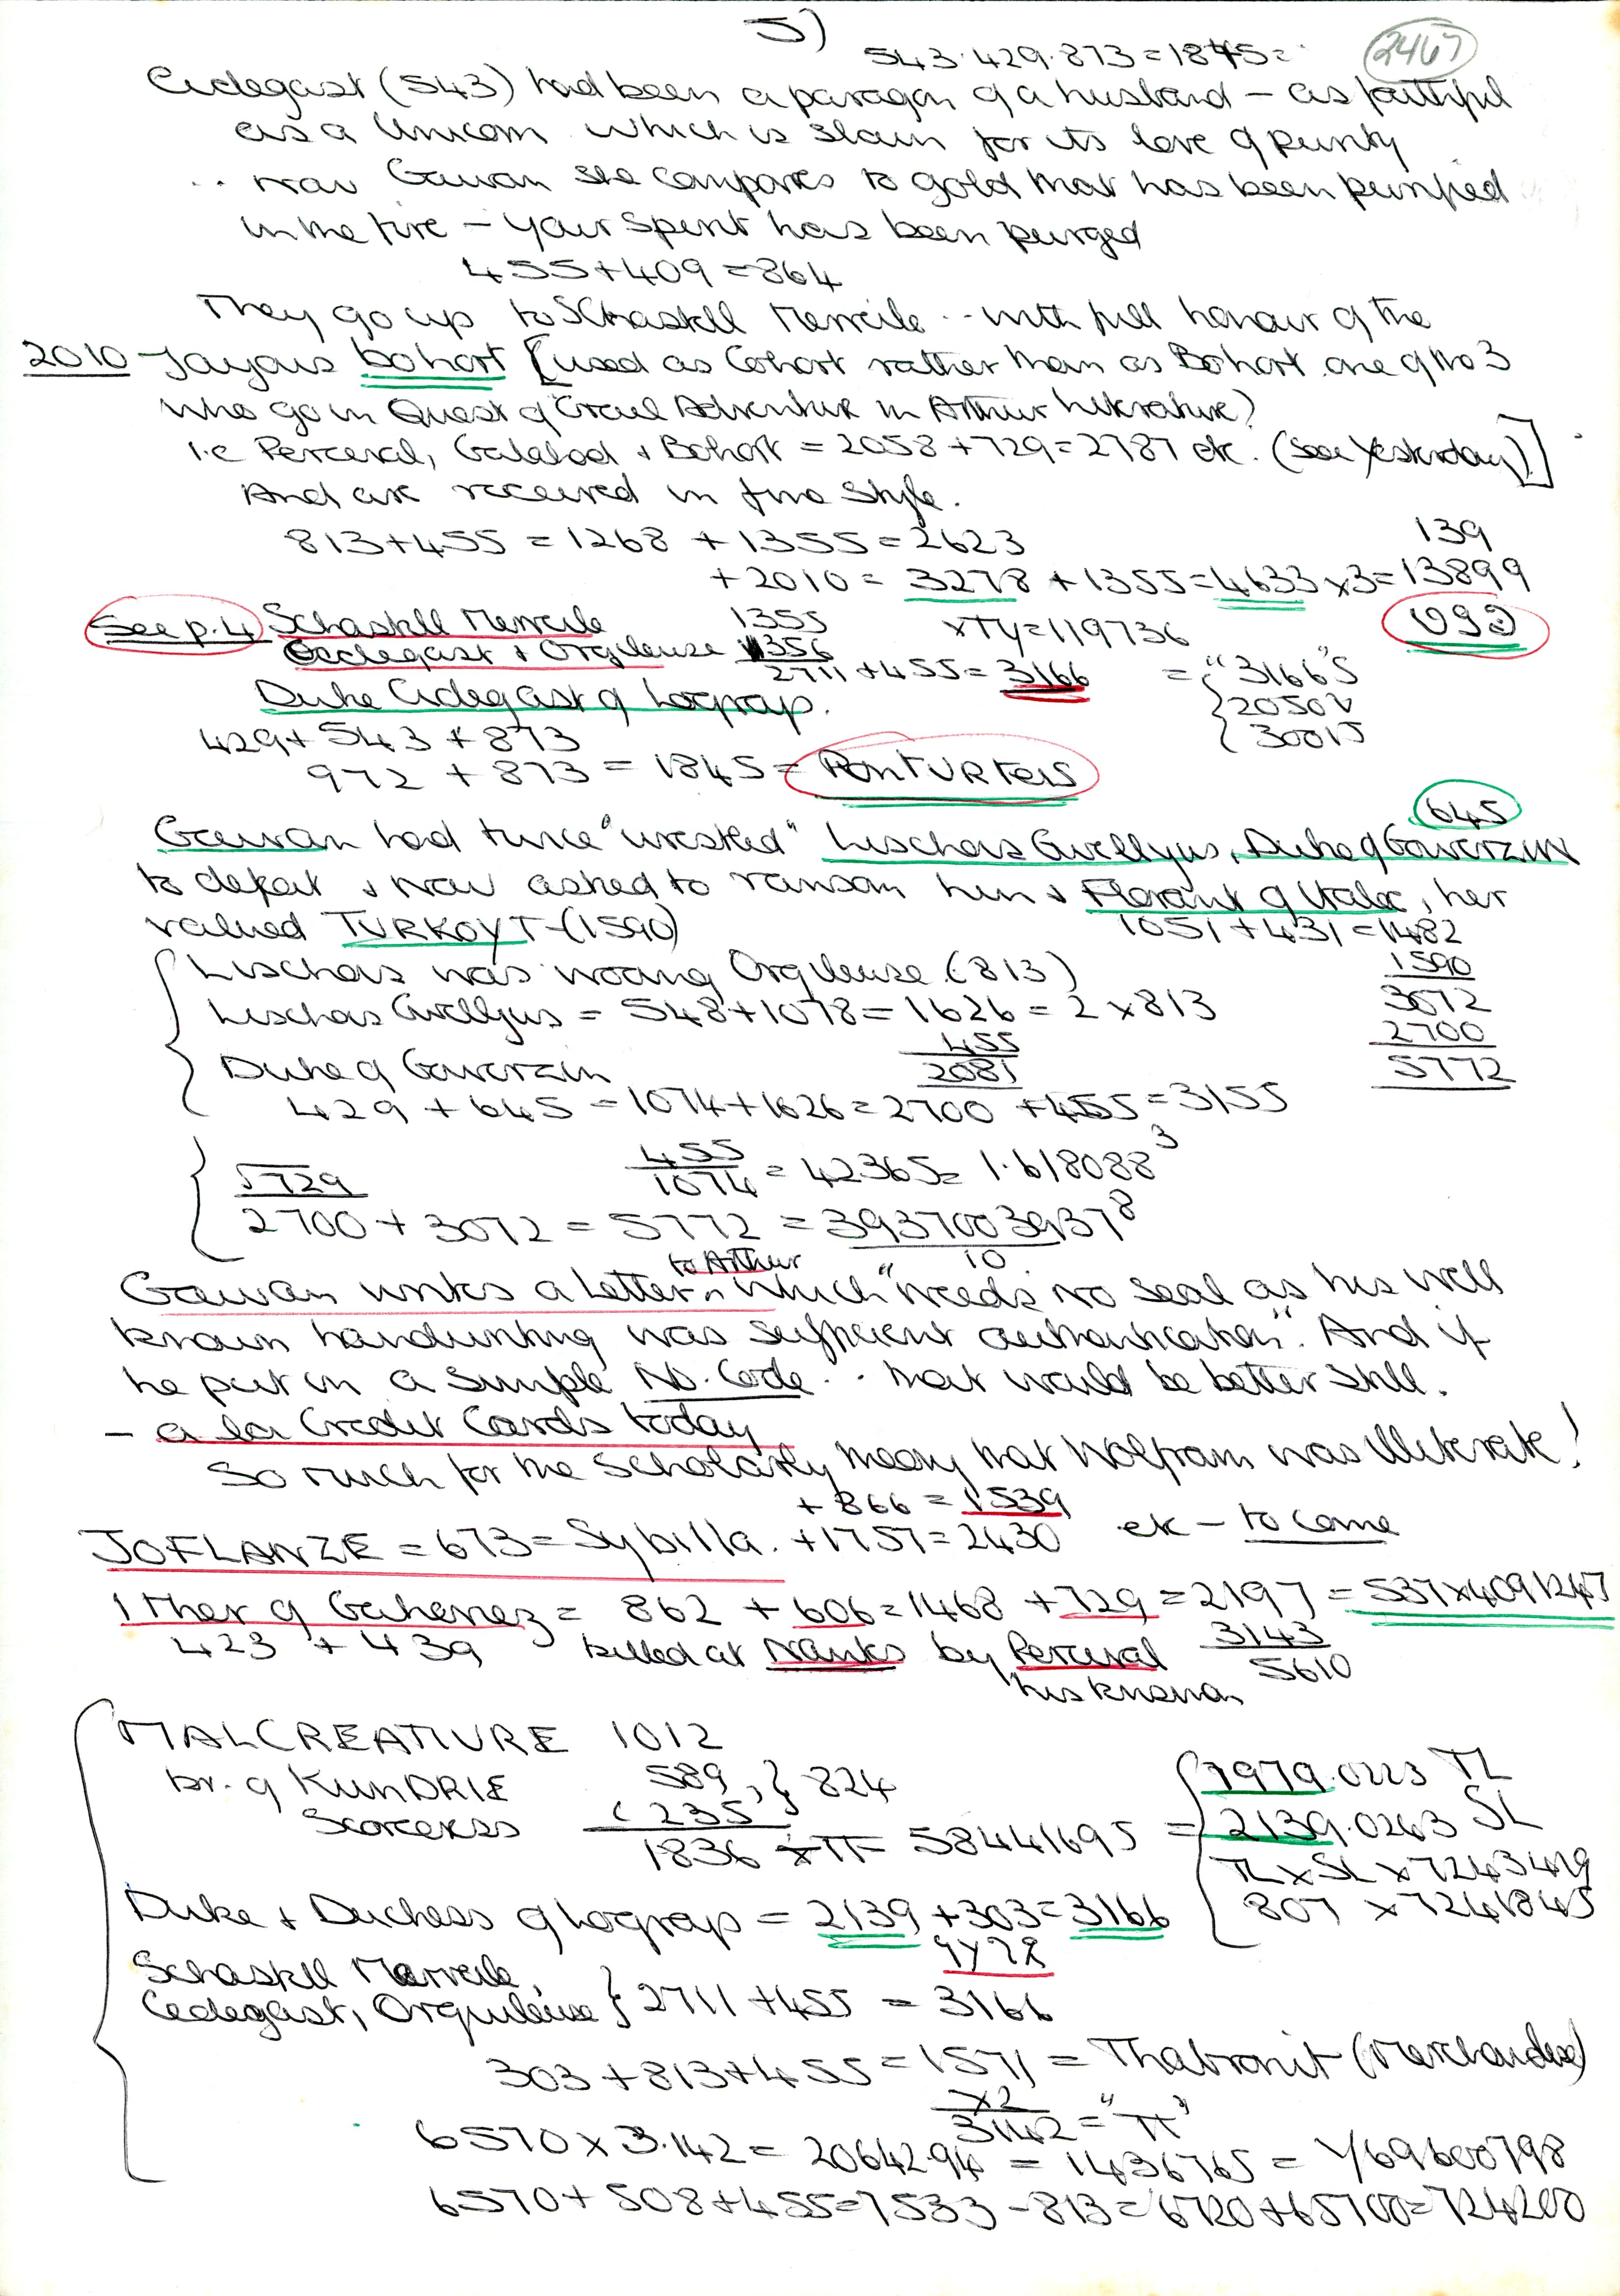 5)
543·429·873=1845=
2467
Cidegast (543) had been a paragon of a husband – as faithful
as a Unicorn which is slain for its love of purity
.. now Gawan she compares to gold that has been purified
in the fire – your spirit has been purged
455+409=864
They go up to Schastell Merveile .. with full honour of the
2010 Joyous bohort [used as Cohort rather than as Bohort one of the 3
who go in Quest of Grail Adventure in Arthur Literature?
i.e Perceval, Galahad + Bohort = 2058+729=2787 etc. (see yesterday)]
And are received in fine style.
813+455=1268+1355=2623
139
+2010=3278+1355=4633×3=13899
See p.4 Schastell Merveile 1355
×TY=119736
Cidegast + Orgileuse 1356
2711+455=3166
= "3166"S
Duke Cidegast of Lograp.
2050V
30015
429+543+873
972+873=1845= PONTURTEIS
645
Gawan had twice "wrested" Lischois Gwellyus, Duke of Gowerzin
to defeat & now asked to ransom him & Florant of Itale, her
valued TURKOYT-(1590)
1051+431=1482
Lischois was wooing Orgileuse (813)
1590
Lischois Gwellyus = 548+1078=1626=2×813
3072
455
2700
2081
5772
Duke of Gowerzin
429+645=1074+1626=2700+455=3155
455/1074=42365=1.618088³
5729
2700+3072=5772=3937003937⁸
10
to Arthur
Gawan writes a letter which "needs no seal as his well
known handwriting was sufficient authentication". And if
he put in a simple No. Code.. that would be better still.
– a la Credit Cards today
So much for the scholarly theory that Wolfram was illiterate!
+866=1539
JOFLANZE=673=Sybilla.+1757=2430 etc – to come
Ither of Gahenez=862+606=1468+729=2197=537×4091247
423+439 killed at Nantes by Perceval
3143
5610
his kinsman
MALCREATIURE 1012
br. of KUNDRIE 589,} 824
Sorceress (235
1836×π=58441695=
7979.0223 TL
2139.0263 SL
TL×SL×7243419
807×7241845
Duke & Duchess of Lograp=2139+303=3166
Schastell Merveile,
Cidegast, Orguleuse } 2711+455=3166
303+813+455=1571=Thabronit (Merchandise)
×2
3142="π"
6570×3.142=20642.94=1436765=Y69600798
6570+508+455=7533-813=6720+65700=724200